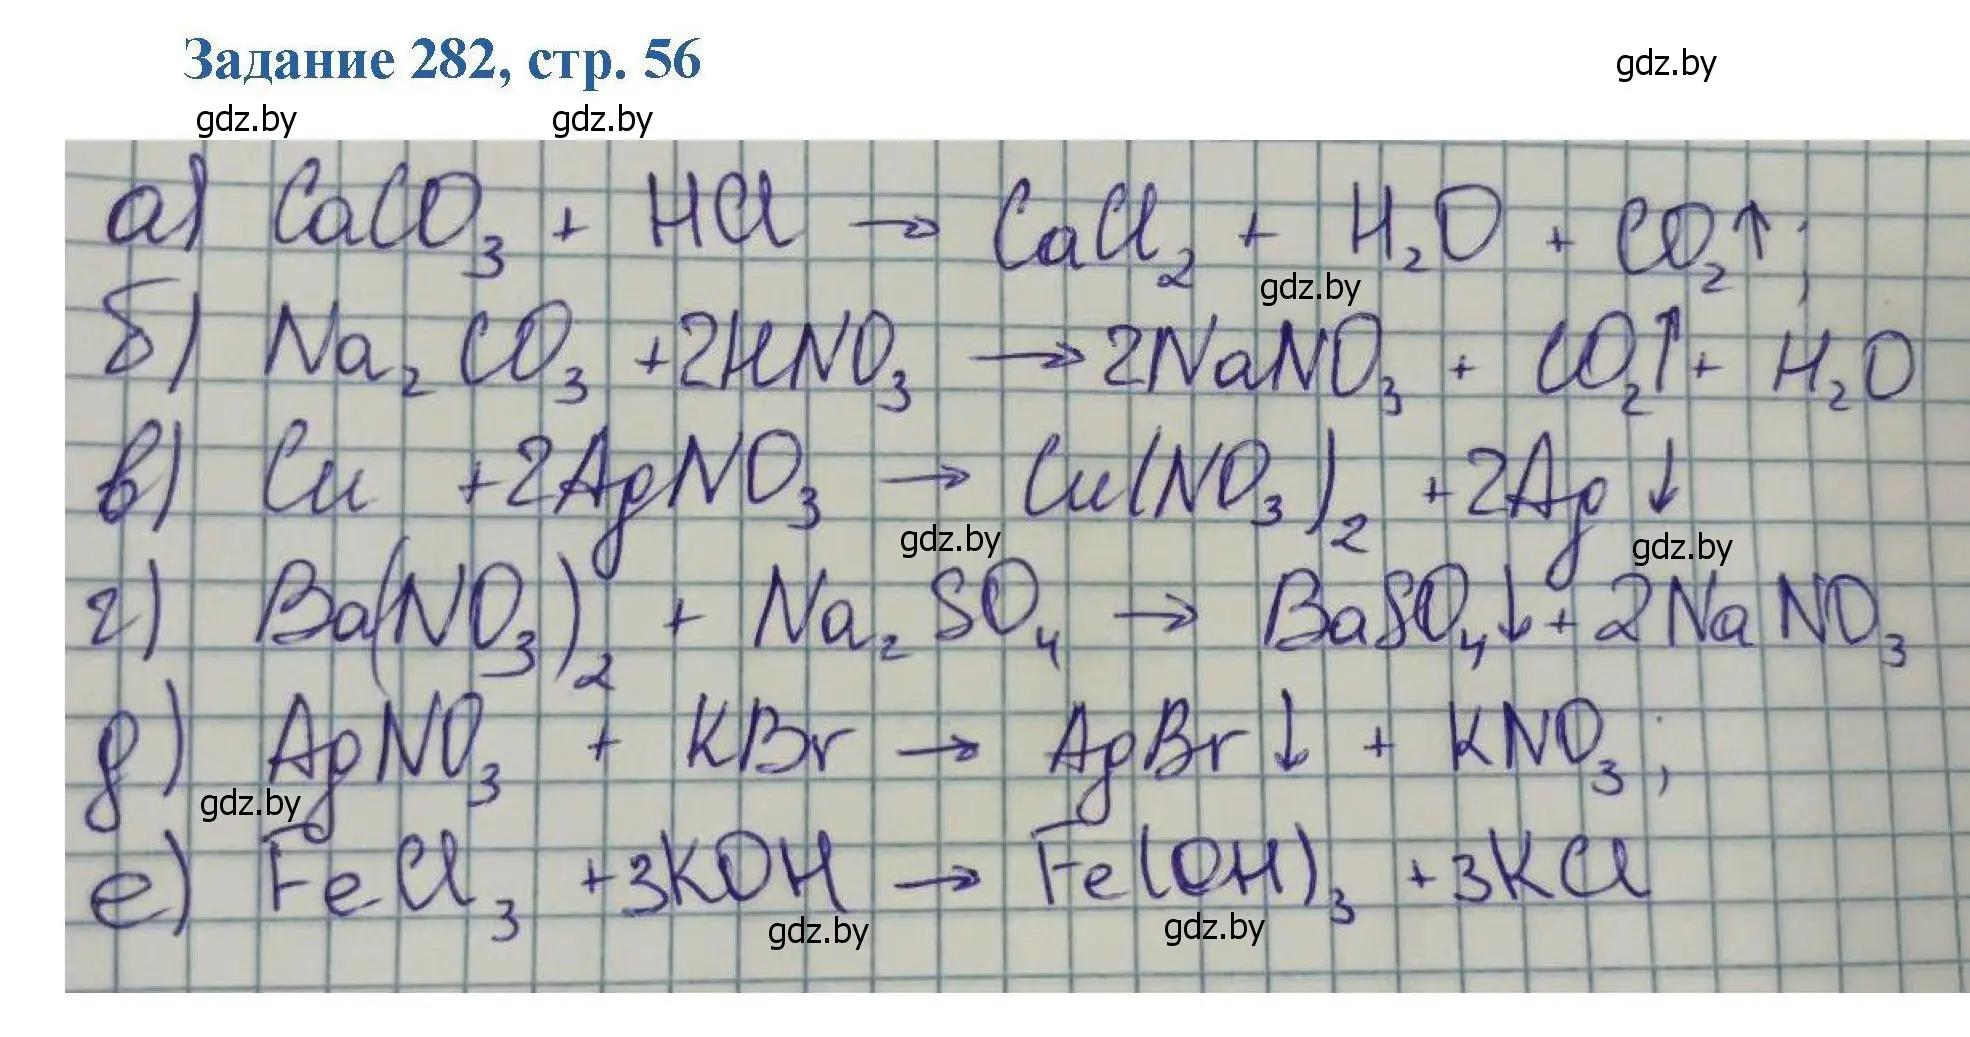 Задание 282, стр. 56
gdz.by
gdz.by gdz.by
а) CaCO₃ + HCl → CaCl₂ + H₂O + CO₂↑;
gdz.by
б) Na₂CO₃ +2HNO₃ → 2NaNO₃ + CO₂↑ + H₂O
в) Cu +2AgNO₃ → Cu(NO₃)₂ +2Ag↓
gdz.by gdz.by
г) Ba(NO₃)₂ + Na₂SO₄ → BaSO₄↓ + 2NaNO₃
д) AgNO₃ + KBr → AgBr↓ + KNO₃;
gdz.by
е) FeCl₃ +3KOH → Fe(OH)₃ +3KCl
gdz.by gdz.by